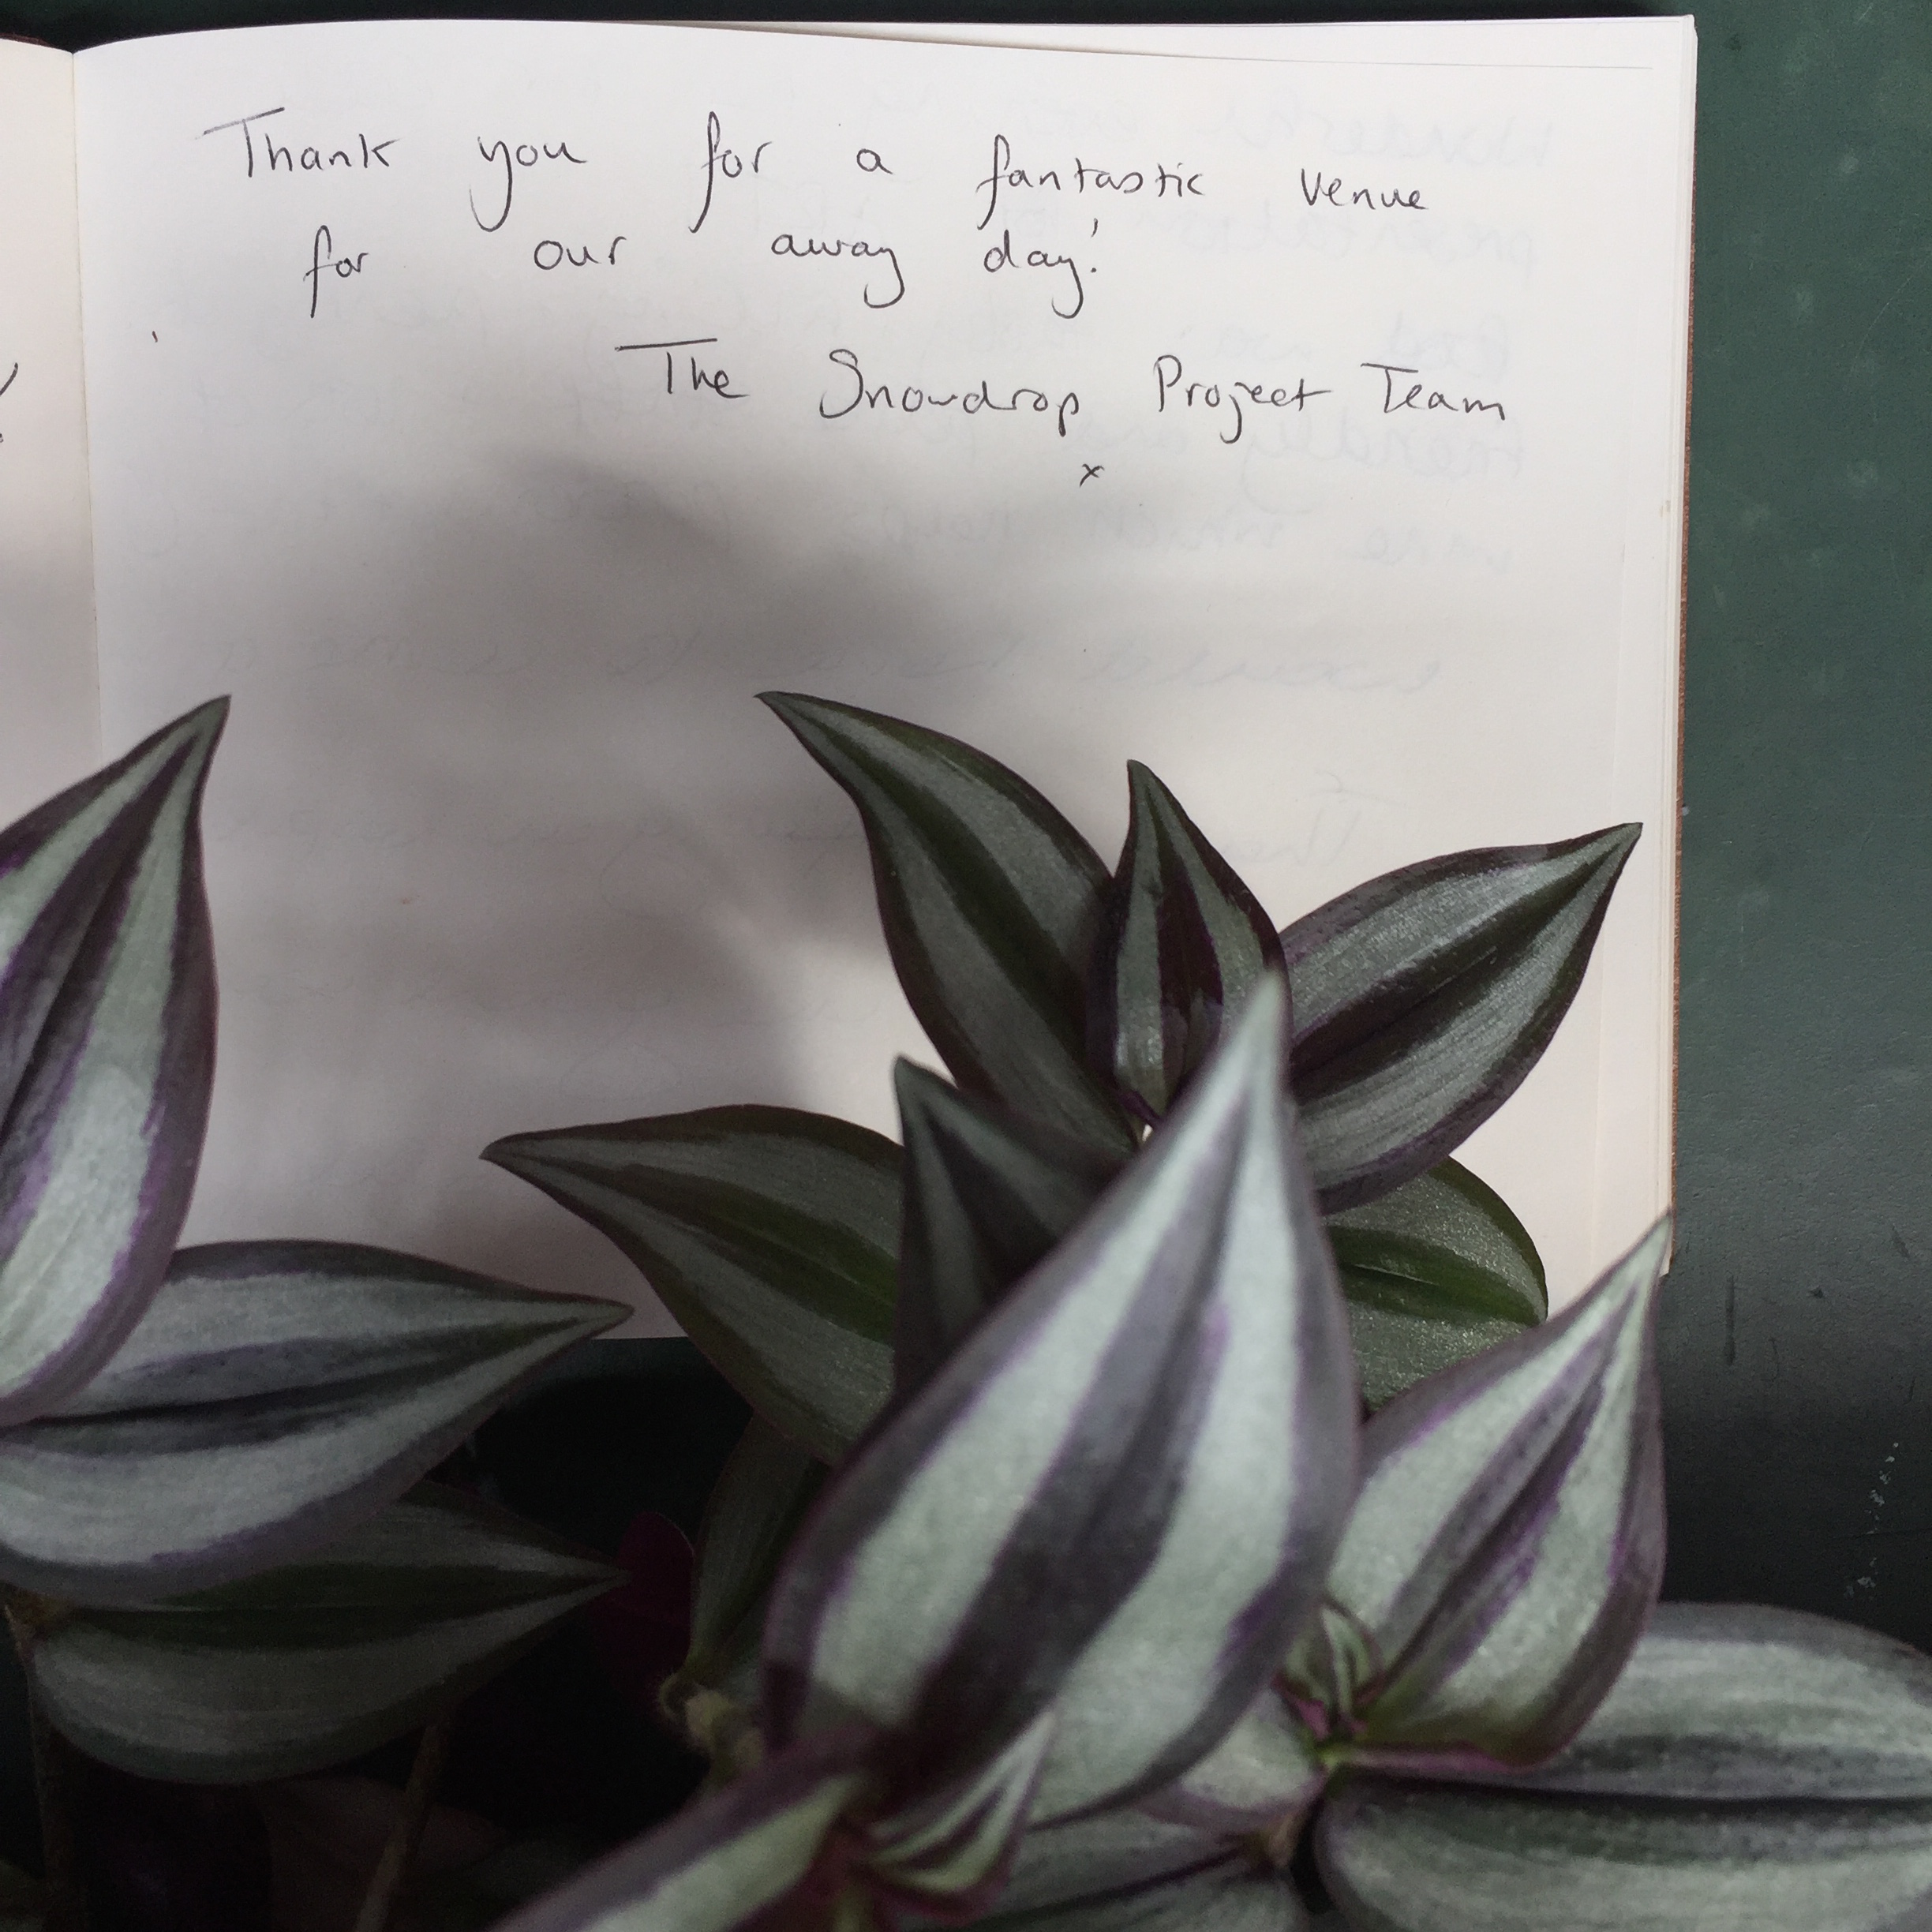 Thank you for a fantastic venue
for our away day!
The Snowdrop Project Team
x